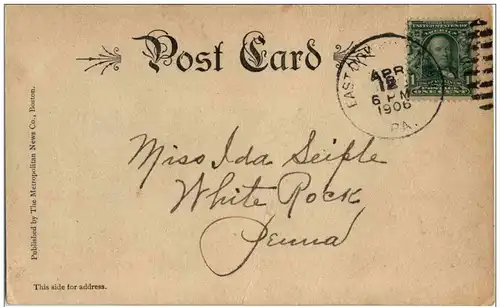 Post Card
UNITED STATES OF
AMERICA
ONE CENT
APR
12
6 PM
1906
PA.
Miss Ida Seiple
White Rock
Penna
Published by The Metropolitan News Co., Boston.
This side for address.